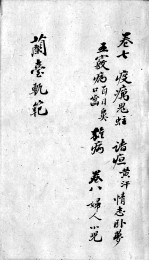 卷七 疫癘鬼疰 諸疸黃汗 情志卧夢
五竅病耳目鼻口齒 雜病 卷八 婦人 小兒
蘭臺軌範